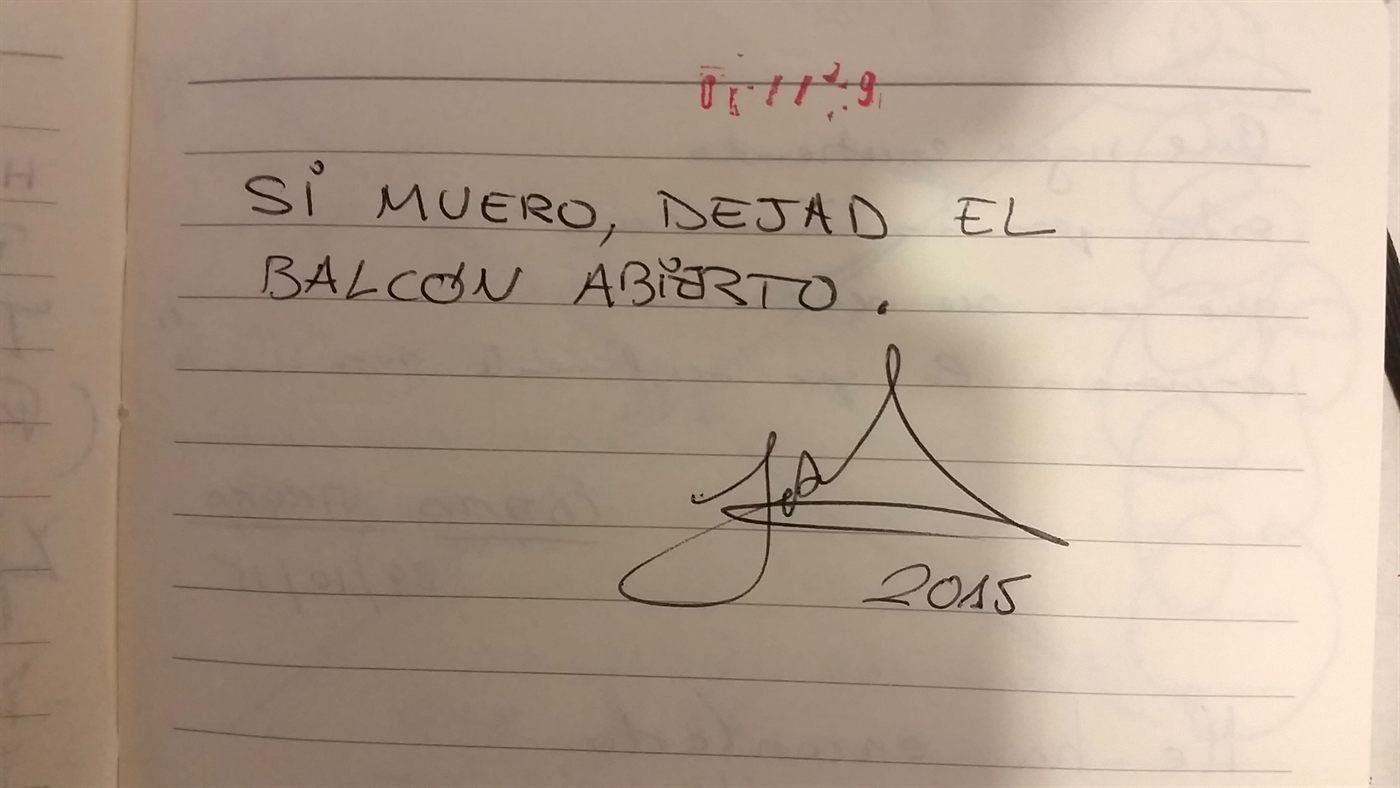 SI MUERO, DEJAD EL
BALCÓN ABIERTO.
2015